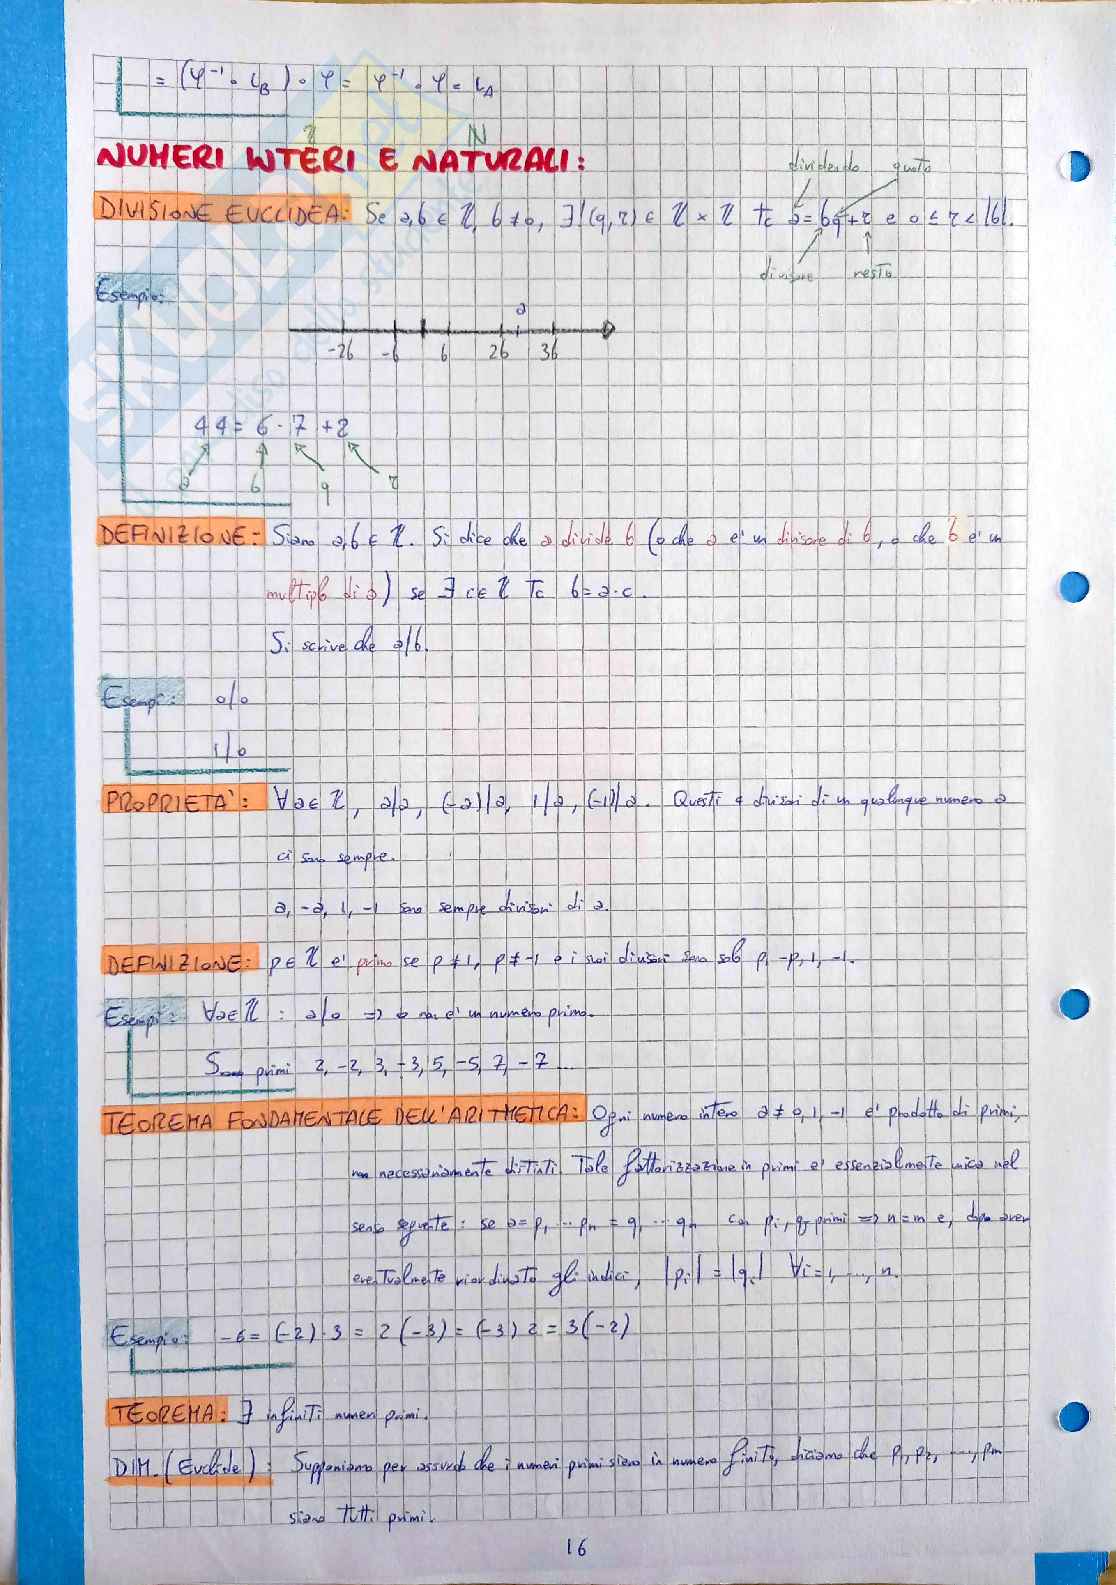 = (φ⁻¹ ∘ ι_B) ∘ φ = φ⁻¹ ∘ φ = ι_A
ℤ ℕ
NUMERI INTERI E NATURALI:
dividendo quoto
DIVISIONE EUCLIDEA: Se a,b ∈ ℤ, b ≠ 0, ∃!(q,r) ∈ ℤ × ℤ Tc a = bq + r e 0 ≤ r < |b|.
divisore resto
Esempio:
a
-2b -b b 2b 3b
44 = 6 · 7 + 2
a b q r
DEFINIZIONE: Siano a,b ∈ ℤ. Si dice che a divide b (o che a e' un divisore di b, o che b e' un
multiplo di a) se ∃ c ∈ ℤ Tc b = a·c.
Si scrive che a|b.
Esempi: 0|0
1|0
PROPRIETA': ∀a ∈ ℤ, a|a, (-a)|a, 1|a, (-1)|a. Questi 4 divisori di un qualunque numero a
ci sono sempre.
a, -a, 1, -1 sono sempre divisori di a.
DEFINIZIONE: p ∈ ℤ e' primo se p ≠ 1, p ≠ -1 e i suoi divisori sono solo p, -p, 1, -1.
Esempi: ∀a ∈ ℤ : a|0 => 0 non e' un numero primo.
Sono primi 2, -2, 3, -3, 5, -5, 7, -7 ...
TEOREMA FONDAMENTALE DELL'ARITMETICA: Ogni numero intero a ≠ 0, 1, -1 e' prodotto di primi,
non necessariamente distinti. Tale fattorizzazione in primi e' essenzialmente unica nel
senso seguente: se a = p₁ ... pₙ = q₁ ... qₘ con pᵢ, qⱼ primi => n = m e, dopo aver
eventualmente riordinato gli indici, |pᵢ| = |qᵢ| ∀i = 1, ..., n.
Esempio: -6 = (-2) · 3 = 2 (-3) = (-3) 2 = 3 (-2)
TEOREMA: ∃ infiniti numeri primi.
DIM. (Euclide): Supponiamo per assurdo che i numeri primi siano in numero finito, diciamo che p₁, p₂, ..., pₘ
siano tutti primi.
16